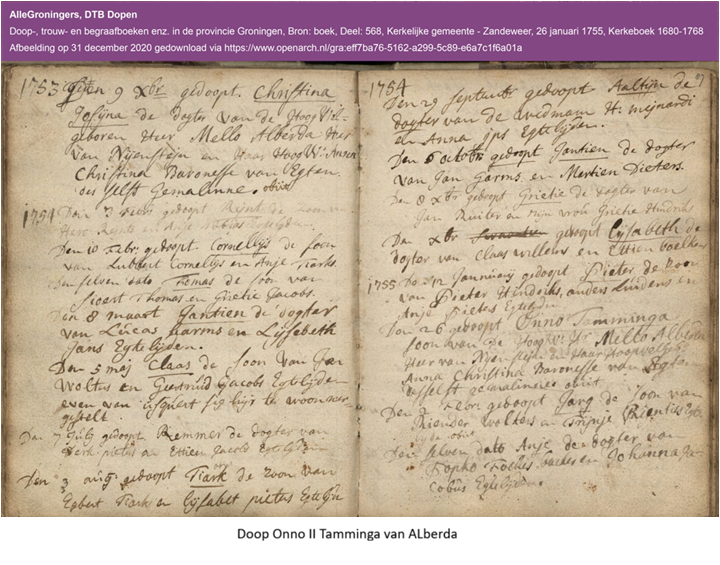 AlleGroningers, DTB Dopen
Doop-, trouw- en begraafboeken enz. in de provincie Groningen, Bron: boek, Deel: 568, Kerkelijke gemeente - Zandeweer, 26 januari 1755, Kerkeboek 1680-1768
Afbeelding op 31 december 2020 gedownload via https://www.openarch.nl/gra:eff7ba76-5162-a299-5c89-e6a7c1f6a01a
1753 Den 9 Xbr gedoopt Christina
Josijna de dogter van de Hoog Wel-
geboren Heer Mello Alberda Heer
van Nijensteijn en Haar Hoog
Christina Baronesse van Egten
des selfs Gemalinne. obiit
1754 Den 3 Febr gedoopt Rijnt de soon van
Rijnts en Anje Egtelijden
Den 10 Febr gedoopt Cornellijs de soon
van Lubbert Cornellijs en Anje
den selven dato Thomas de soon van
Sicert Thomas en Grietie Jacobs.
Den 8 maart Jantien de dogter
van Lucas Harms en Lijsebeth
Jans Egtelijden.
Den 5 maj Claas de soon van Jan
Woltus en Geertruid Jacobs Egtelijden
even van Usquert sig hijr te woon neer
gestelt.
Den 7 Julij gedoopt Remmer de dogter van
Derk pieters en Ettien Egtelijden
Den 3 aug gedoopt Tiark de zoon van
Egbert Tiark en Lijsabet pieters Egtelijd
1754
Den 29 septemb gedoopt Aaltijn de
dogter van de weduan H: meinardi
en Anna Egtelijden.
Den 6 octobr gedoopt Jantien de dogter
van Jan Harms en Martien Dieters.
Den 8 Xbr gedoopt Grietie de dogter van
Jan Ruiter en mijn vrou Grietie Hindriks
Den Xbr gedoopt Lijsabeth de
dogter van Claas willems en Ettien
1755 Den 12 Jannuarij gedoopt Pieter de zoon
van Pieter Hindriks, anders Luidens en
Anje Pieters Egtelijden
Den 26 gedoopt Onno Tamminga
soon van de Hoog W: H: Mello Alberda
Heer van Nijensteijn en Haar Hoogwelgb:
Anna Christina Baronesse van Egten
desselfs gemalinne obiit
Den 2 Febr gedoopt Jarg de soon van
Riender Wolters en Trijnje Rienties
obiit
Den selven dato Anje de dogter van
Fopko Foekes en Johanna Ja-
cobus Egtelijden.
Doop Onno II Tamminga van ALberda